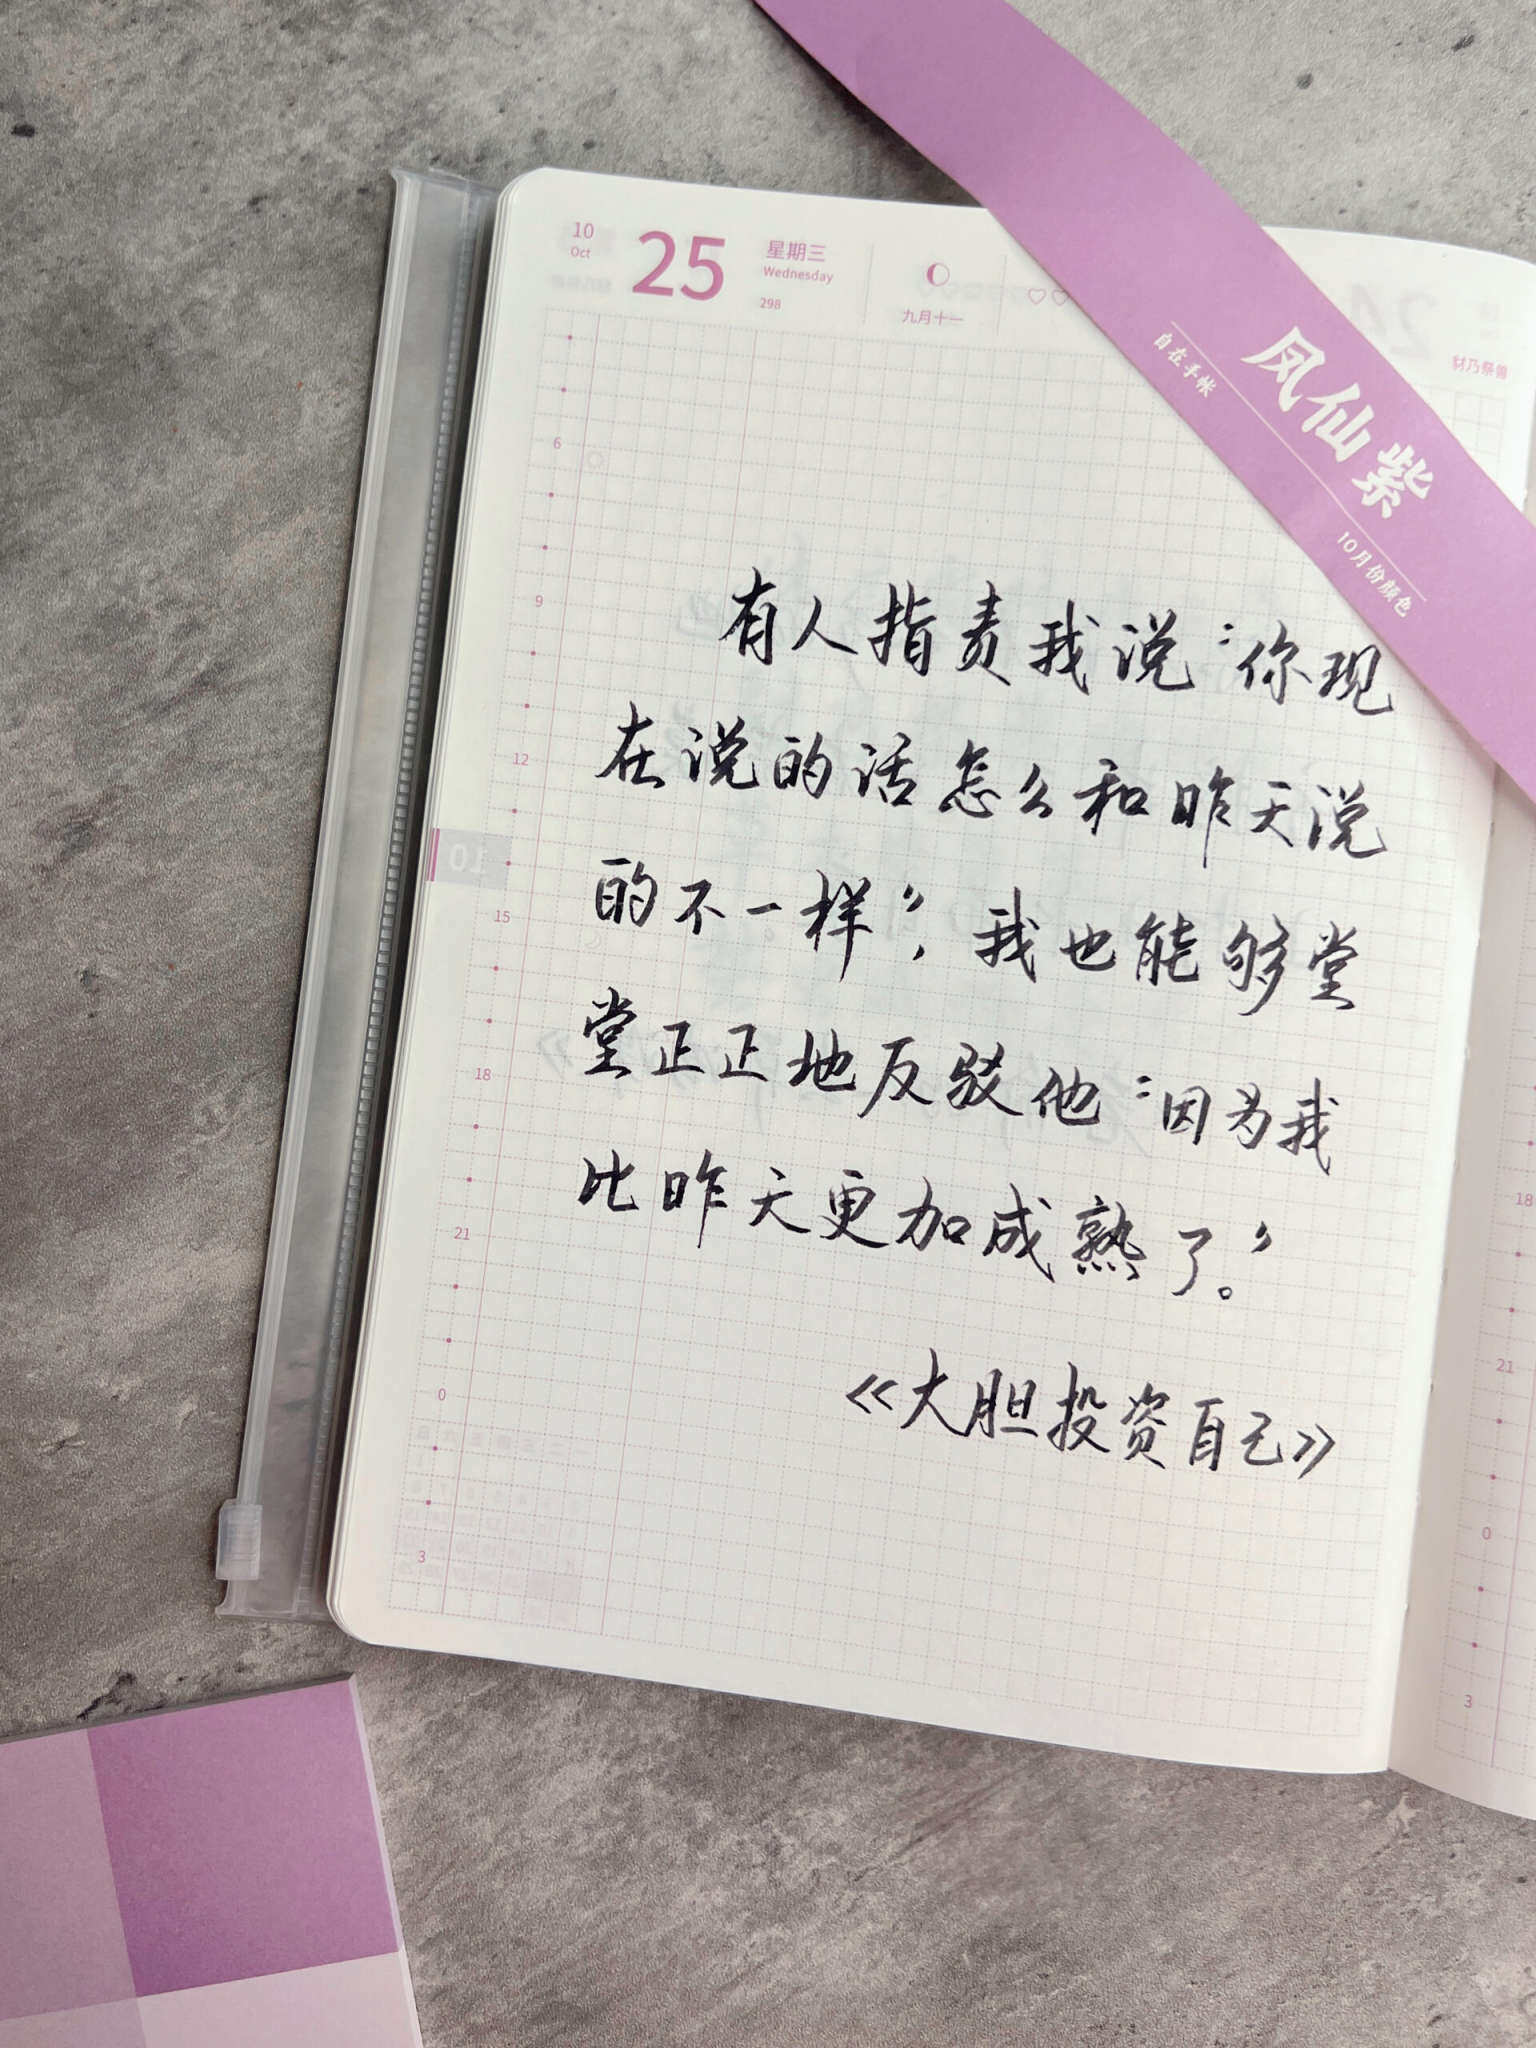 10
Oct
25
星期三
Wednesday
298
九月十一
豺乃祭兽
自在手帐
凤仙紫
10月份颜色
6
9
12
01
15
18
21
0
3
有人指责我说“你现
在说的话怎么和昨天说
的不一样”,我也能够堂
堂正正地反驳他“因为我
比昨天更加成熟了。”
《大胆投资自己》
18
21
0
3